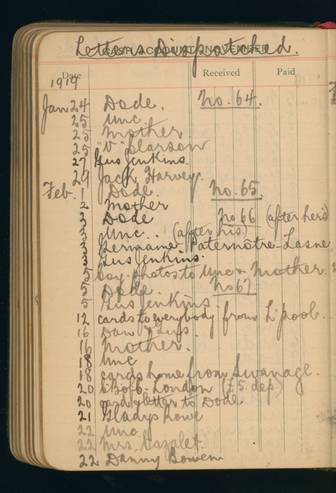 Letters Dispatched.
CASH ACCOUNT NOVEMBER
Date Received Paid
1919
Jan 24 Dode. No. 64.
25 Unc.
25 Mother
25 V Pearson
27 Gus Jenkins.
29 Jack Harvey.
Feb. 1 Dode. No. 65.
2 Mother
3 Dode No 66 (after hers)
3 Unc.. (after his)
3 Germaine Paternôtre-Lasne
3 Gus Jenkins.
5 photos to Unc & Mother.
5 Dode. No 67
5 Gus Jenkins.
12 cards to everybody from L'pool.
16 Dan
16 Mother.
18 Unc
18 cards home from Swanage.
20 London (£5 dep)
20 card & letter to Dode.
21 Gladys Lowe
22 Unc.
22 Mrs. Hazlet.
22 Danny Bowen